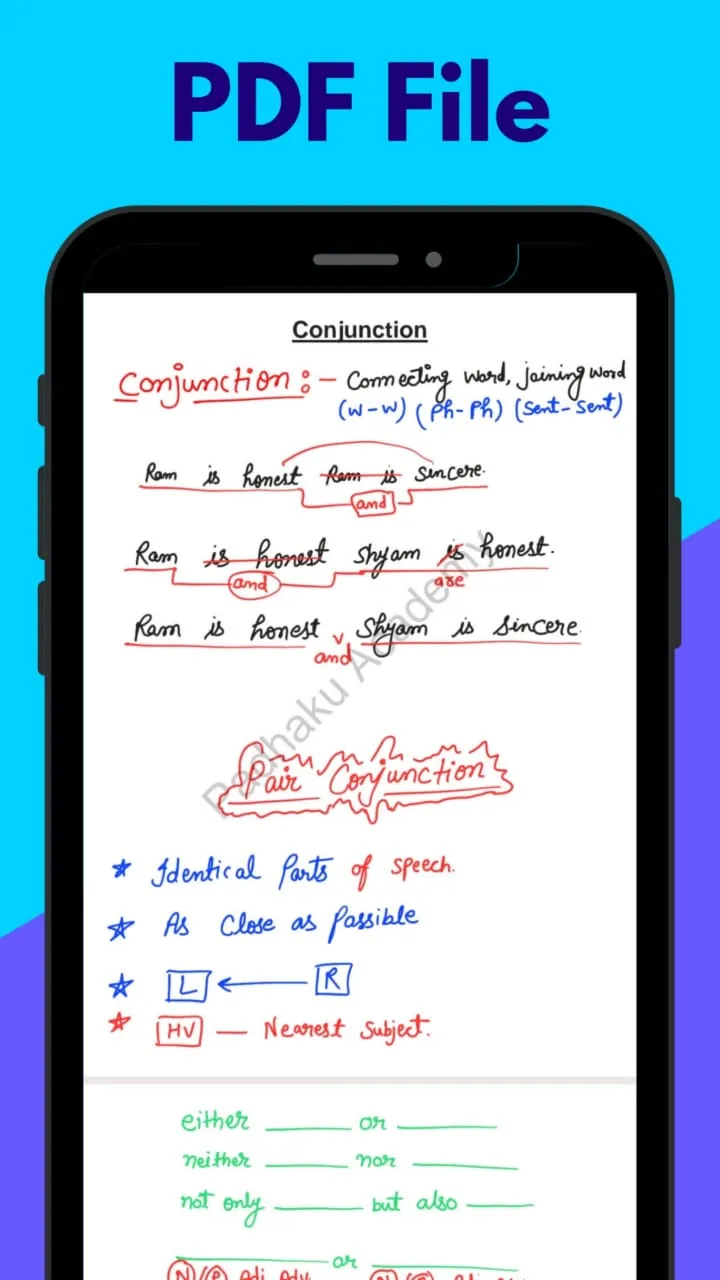 PDF File
Conjunction
Conjunction :- Connecting word, joining word
(W-W) (Ph-Ph) (Sent-Sent)
Ram is honest Ram is sincere.
and
Ram is honest Shyam is honest.
and are
Ram is honest Shyam is sincere
and
Padhaku Academy
Pair Conjunction
Identical Parts of speech.
As Close as Possible
L ← R
HV — Nearest Subject.
either ____ or ____
neither ____ nor ____
not only ____ but also ____
____ or ____
N/P Adj Adv